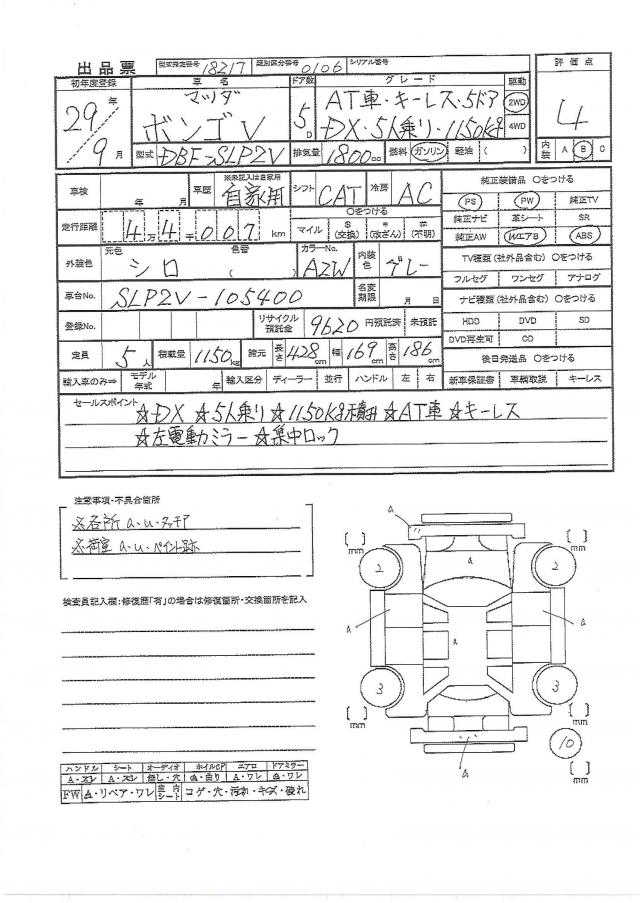 出品票 型式指定番号 18217 類別区分番号 0106 シリアル番号
初年度登録 車名 ドア数 グレード 駆動 評価点
29年 マツダ 5D AT車・キーレス・5ドア 2WD 4
9月 ボンゴV DX・5人乗り・1150kg 4WD
型式 DBF-SLP2V 排気量 1800cc 燃料 ガソリン・軽油・( ) 内装 A B C
車検 年 月 車歴 ※未記入は自家用 自家用 シフト CAT 冷房 AC 純正装備品 ○をつける
PS PW 純正TV
走行距離 4万4千007km ○をつける マイル $(交換) *(改ざん) #(不明) 純正ナビ 革シート SR
純正AW Wエアb ABS
外装色 元色 シロ 色替 ( ) カラーNo. A2W 内装色 グレー TV種類(社外品含む) ○をつける
フルセグ ワンセグ アナログ
車台No. SLP2V-105400 名変期限 月 日 ナビ種類(社外品含む) ○をつける
登録No. リサイクル預託金 9620 円預託済 未預託 HDD DVD SD
DVD再生可 CD
定員 5人 積載量 1150kg 諸元 長さ 428cm 幅 169cm 高さ 186cm 後日発送品 ○をつける
輸入車のみ⇒ モデル年式 年 輸入区分 ディーラー 並行 ハンドル 左 右 新車保証書 車輌取説 キーレス
セールスポイント ☆DX ☆5人乗り ☆1150kg積み ☆AT車 ☆キーレス
☆左電動ミラー ☆集中ロック
注意事項・不具合箇所
※各所a.u.タッチア
※荷室a.u.ペイント跡
検査員記入欄:修復歴「有」の場合は修復箇所・交換箇所を記入
a
[ ] mm [ ] mm
2 a 2
a a a
3 3
[ ] mm [ ] mm
a 10
[ ] mm
ハンドル シート オーディオ ホイルCP エアロ ドアミラー
A・スレ A・スレ 無し・穴 A・曲り A・ワレ A・ワレ
FW A・リペア・ワレ 室内シート コゲ・穴・汚れ・キズ・破れ